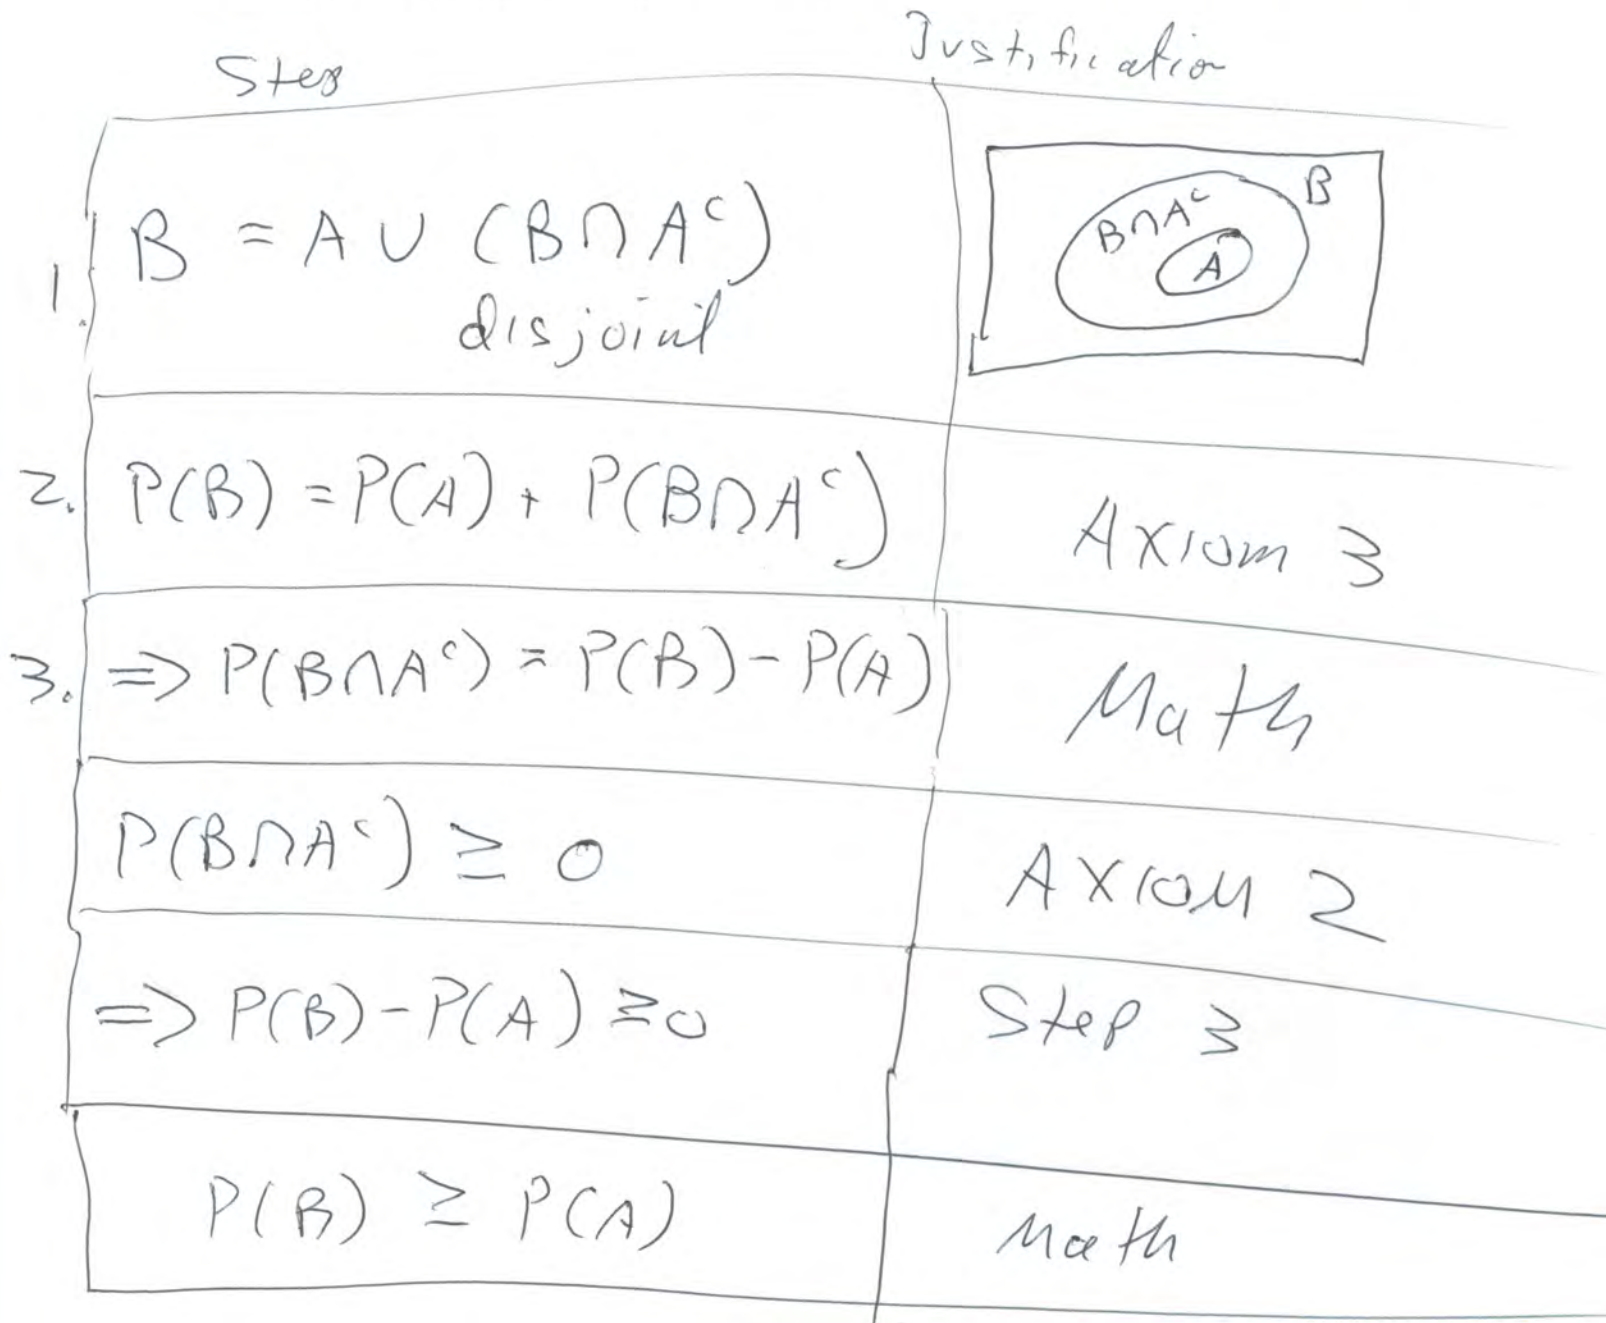 Step Justification
1. B = A ∪ (B ∩ A^c)
disjoint
B
B∩A^c
A
2. P(B) = P(A) + P(B∩A^c) Axiom 3
3. => P(B∩A^c) = P(B) - P(A) Math
P(B∩A^c) ≥ 0 Axiom 2
=> P(B) - P(A) ≥ 0 Step 3
P(B) ≥ P(A) Math